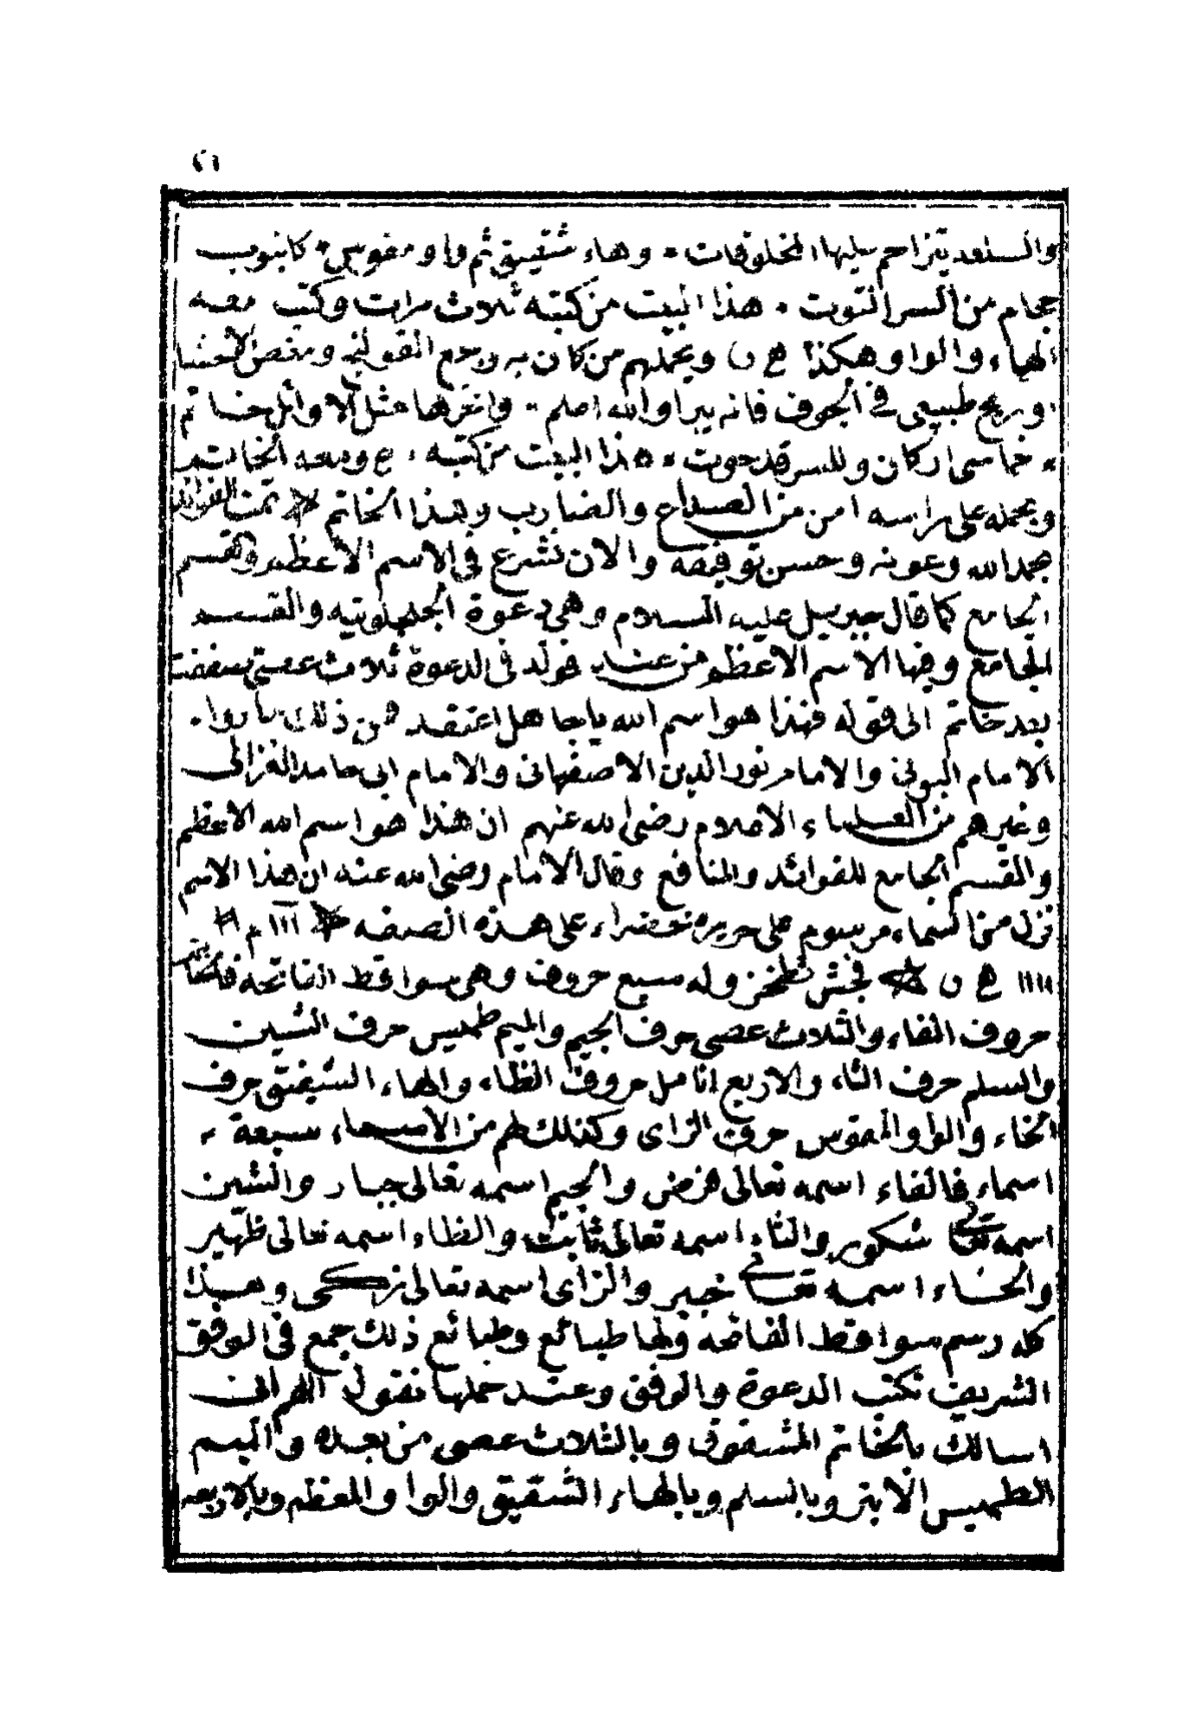 ٢٦
يتزاحم سيلها المخلوقات * وهاء شقيق ثم واو مقوس * كانبوب
حجام من السر التوت * هذا البيت من كتبه ثلاث مرات وكتب معه
الهاء والواو هكذا ويحملهم من كان به وجع القولنج ومغص الاحشا
اوريح طبيعى فى الجوف فانه يبرا والله اعلم * واخرها مثل الاوائل خاتم
* خماسى اركان وللسر قد حوت * هذا البيت من كتبه ومعه الخاتم
ويحمله على راسه امن من الصداع والضارب وهذا الخاتم تمت الفوائد
بحمد الله وعونه وحسن توفيقه والان نشرع فى الاسم الاعظم والقسم
الجامع كما قال جبريل عليه السلام وهى دعوة الجلجلوتيه والقسم
الجامع وفيها الاسم الاعظم من عند قوله فى الدعوة ثلاث عصى صففت
بعد خاتم الى قوله فهذا هو اسم الله ياجاهل اعتقد فمن ذلك ما روا
الامام البونى والامام نور الدين الاصفهانى والامام ابى حامد الغزالى
وغيرهم من العلماء الاعلام رضى الله عنهم ان هذا هو اسم الله الاعظم
والقسم الجامع للفوائد والمنافع وقال الامام رضى الله عنه ان هذا الاسم
نزل من السماء مرسوم على حريره خضراء على هذه الصفه ااا م
اااا فجش ثظخز وله سبع حروف وهى سواقط الفاتحه
حروف الفاء والثلاث عصى حرف الجيم والميم طميس حرف الشين
والسلم حرف الثاء والاربع انامل حروف الظاء والهاء الشقيق حرف
الخاء والواو المقوس حرف الزاى وكذلك لهم من الاسماء سبعة
اسماء فالفاء اسمه تعالى والجيم اسمه تعالى جبار والشين
اسمه تعالى شكور والثاء اسمه تعالى ثابت والظاء اسمه تعالى ظهير
والخاء اسمه تعالى خبير والزاى اسمه تعالى زكى وهذا
كله رسم سواقط الفاتحه ولها طبائع وطبائع ذلك جمع فى الوفق
الشريف تكتب الدعوة والوفق وعند حملها تقول اللهم انى
اسالك بالخاتم المشقوق وبالثلاث عصى من بعده والميم
الطميس الابتر وبالسلم وبالهاء الشقيق والواو المعظم وبالاربعه